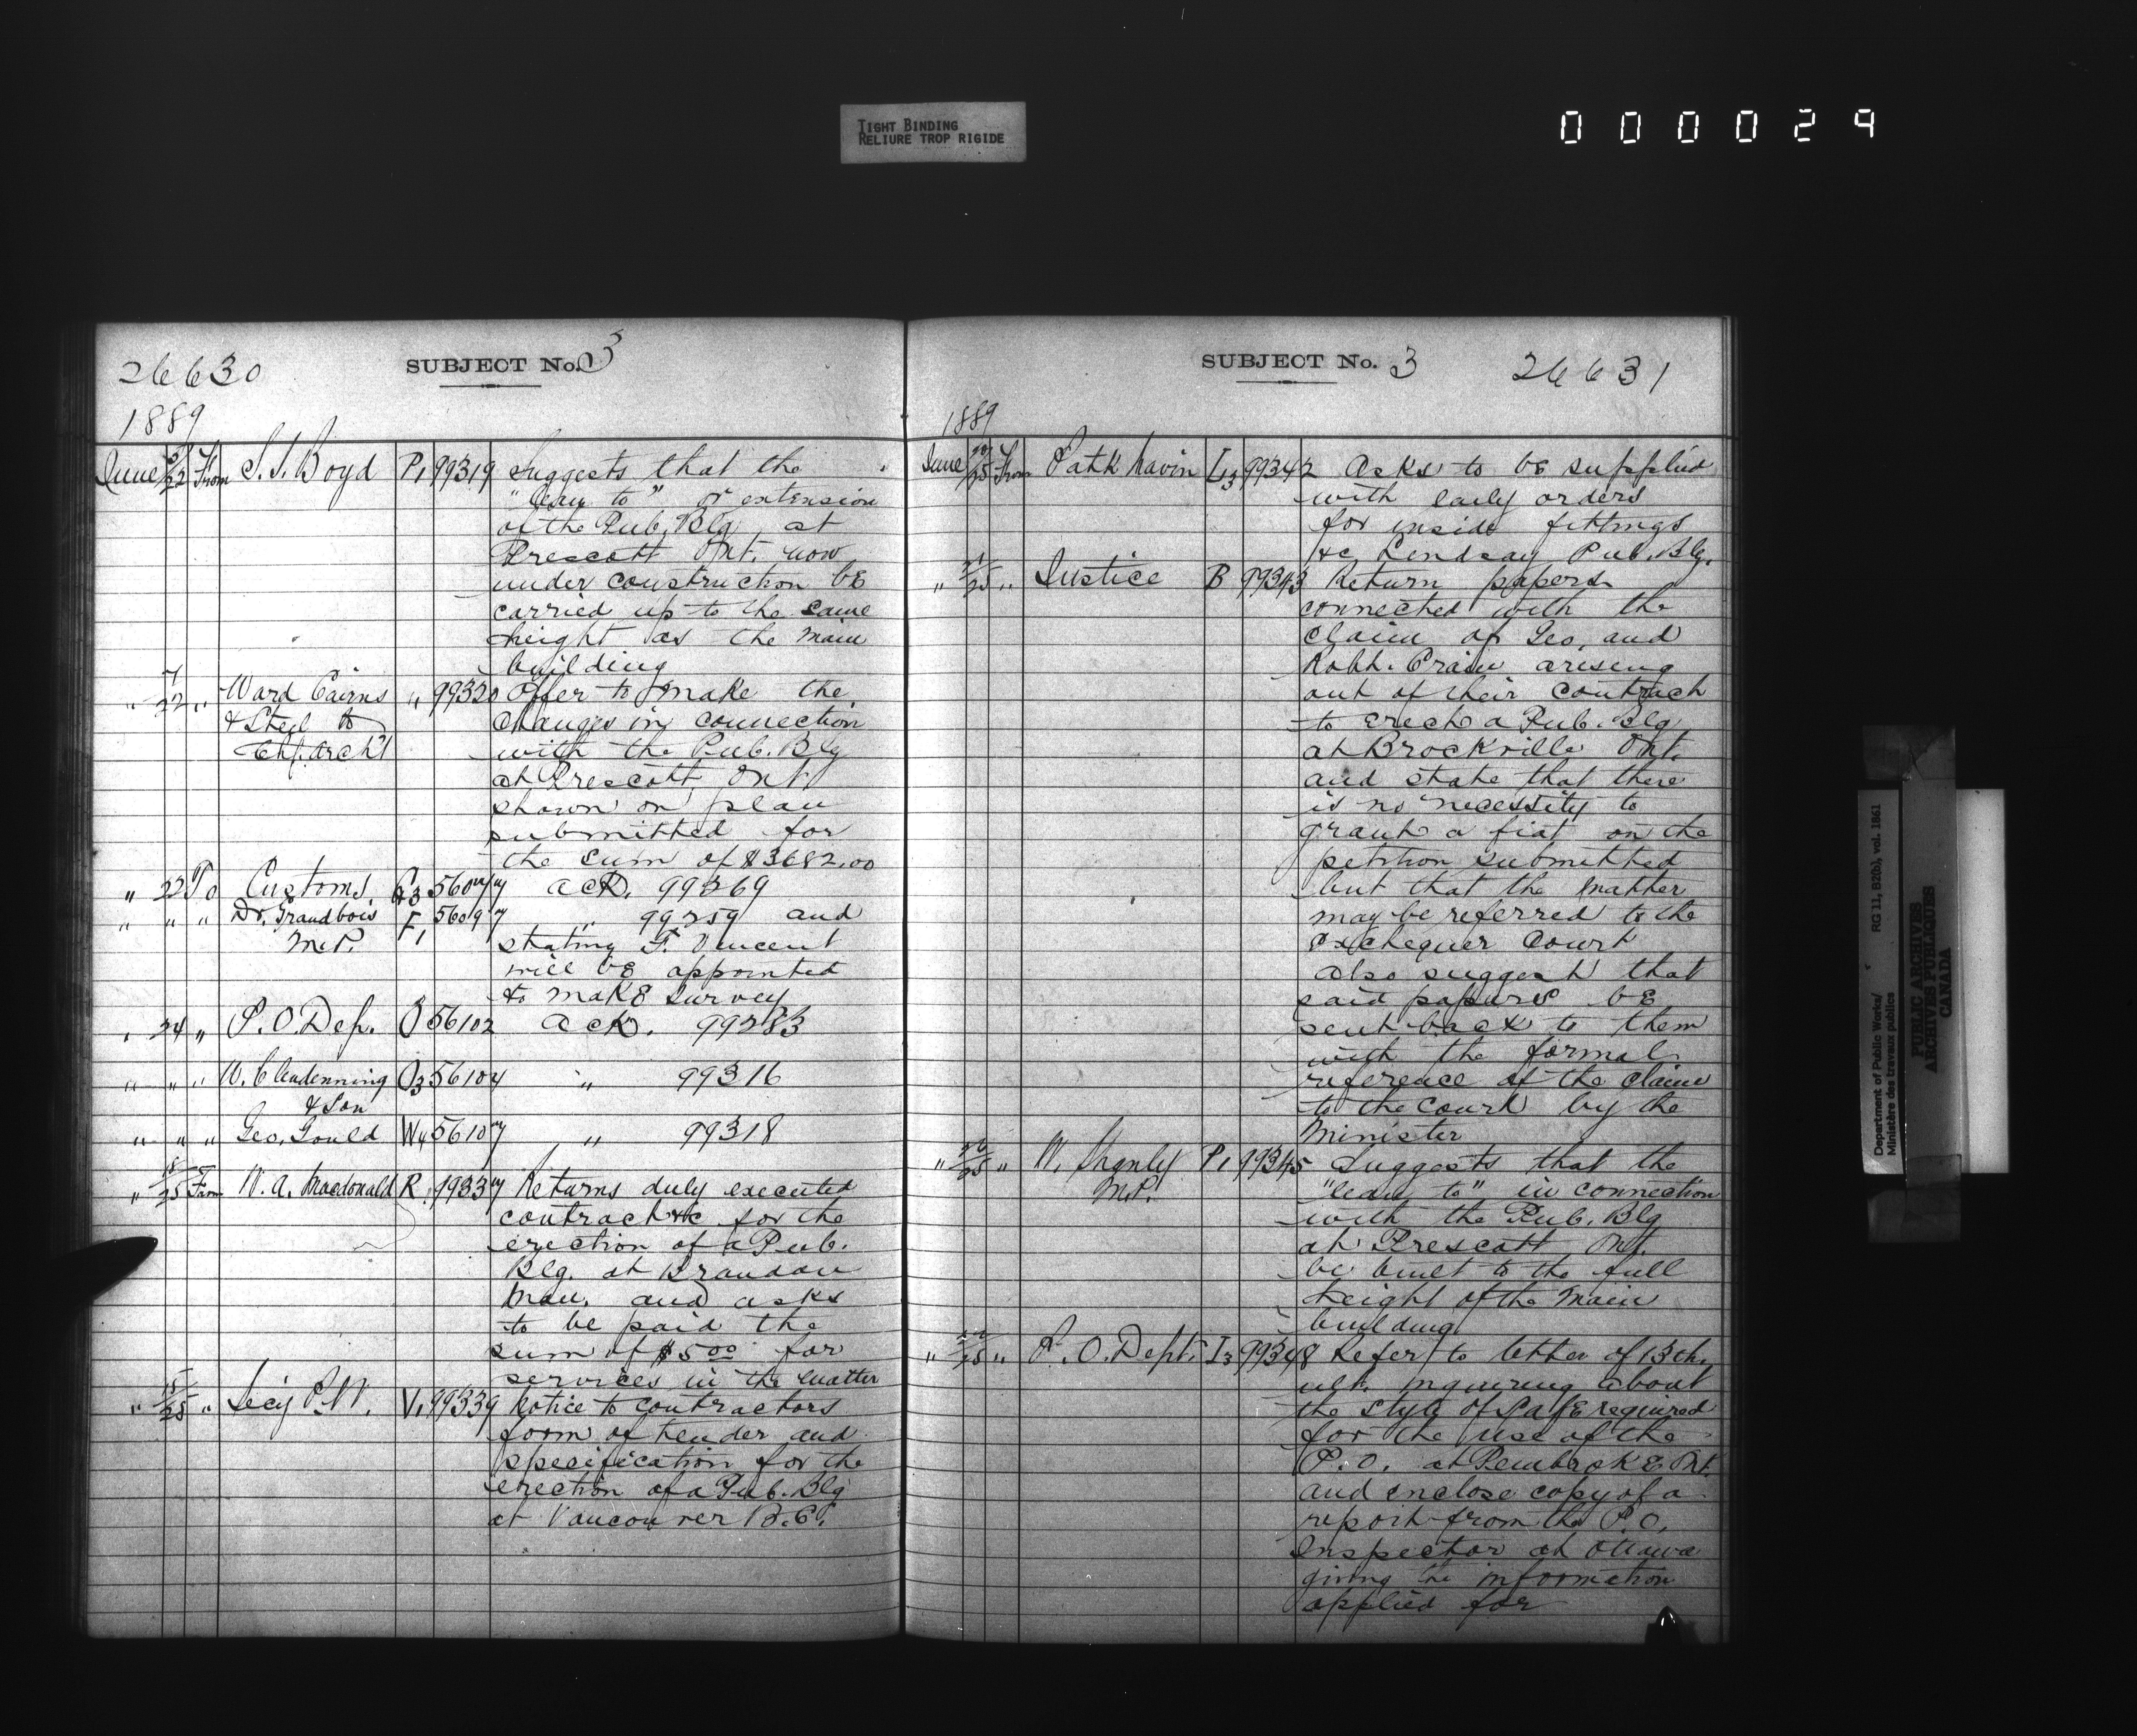 TIGHT BINDING
RELIURE TROP RIGIDE
000029
26630
SUBJECT No. 3
1889
June 22 From S. J. Boyd P1 99319 Suggests that the
"lean to" or extension
of the Pub. Blg at
Prescott Ont. now
under construction be
carried up to the same
height as the main
building
" 22 " Ward Cairns " 99320 Offer to make the
& Steel to changes in connection
Chf. Archt with the Pub. Blg
at Prescott, Ont
shown on plan
submitted for
the sum of $3682.00
" 22 To Customs 56077 ack. 99269
" " " Dr. Grandbois F1 56097 " 99259 and
M.P. stating F. Vincent
will be appointed
to make survey
" 24 " P. O. Dep. O 56102 ack. 99283
" " " W. Clendenning O3 56104 " 99316
& Son
" " " Geo. Gould W4 56107 " 99318
" 18/25 From W. A. Macdonald R 99337 Returns duly executed
contract &c for the
erection of a Pub.
Blg. at Brandon
Man. and asks
to be paid the
sum of $5.00 for
services in the matter
" 15/25 " Secy P.W. V1 99339 Notice to contractors
form of tender and
specification for the
erection of a Pub. Blg
at Vancouver B.C.
SUBJECT No. 3
26631
1889
June 25 From Patk Navin L3 99342 Asks to be supplied
with early orders
for inside fittings
&c Lindsay Pub. Blg.
" 25 " Justice B 99343 Return papers
connected with the
claim of Geo. and
Robt. Crain arising
out of their contract
to erect a Pub. Blg
at Brockville Ont.
and state that there
is no necessity to
grant a fiat on the
petition submitted
but that the matter
may be referred to the
Exchequer Court
also suggest that
said papers be
sent back to them
with the formal
reference of the claim
to the court by the
Minister
" 25 " W. Shanly P1 99345 Suggests that the
M.P. "lean to" in connection
with the Pub. Blg
at Prescott Ont.
be built to the full
height of the main
building
" 25 " P. O. Dept. I3 99348 Refer to letter of 13th
ult. inquiring about
the style of Safe required
for the use of the
P.O. at Pembroke Ont.
and enclose copy of a
report from the P.O.
Inspector at Ottawa
giving the information
applied for
Department of Public Works/
Ministère des travaux publics
RG 11, B2(b), vol. 1861
PUBLIC ARCHIVES
ARCHIVES PUBLIQUES
CANADA